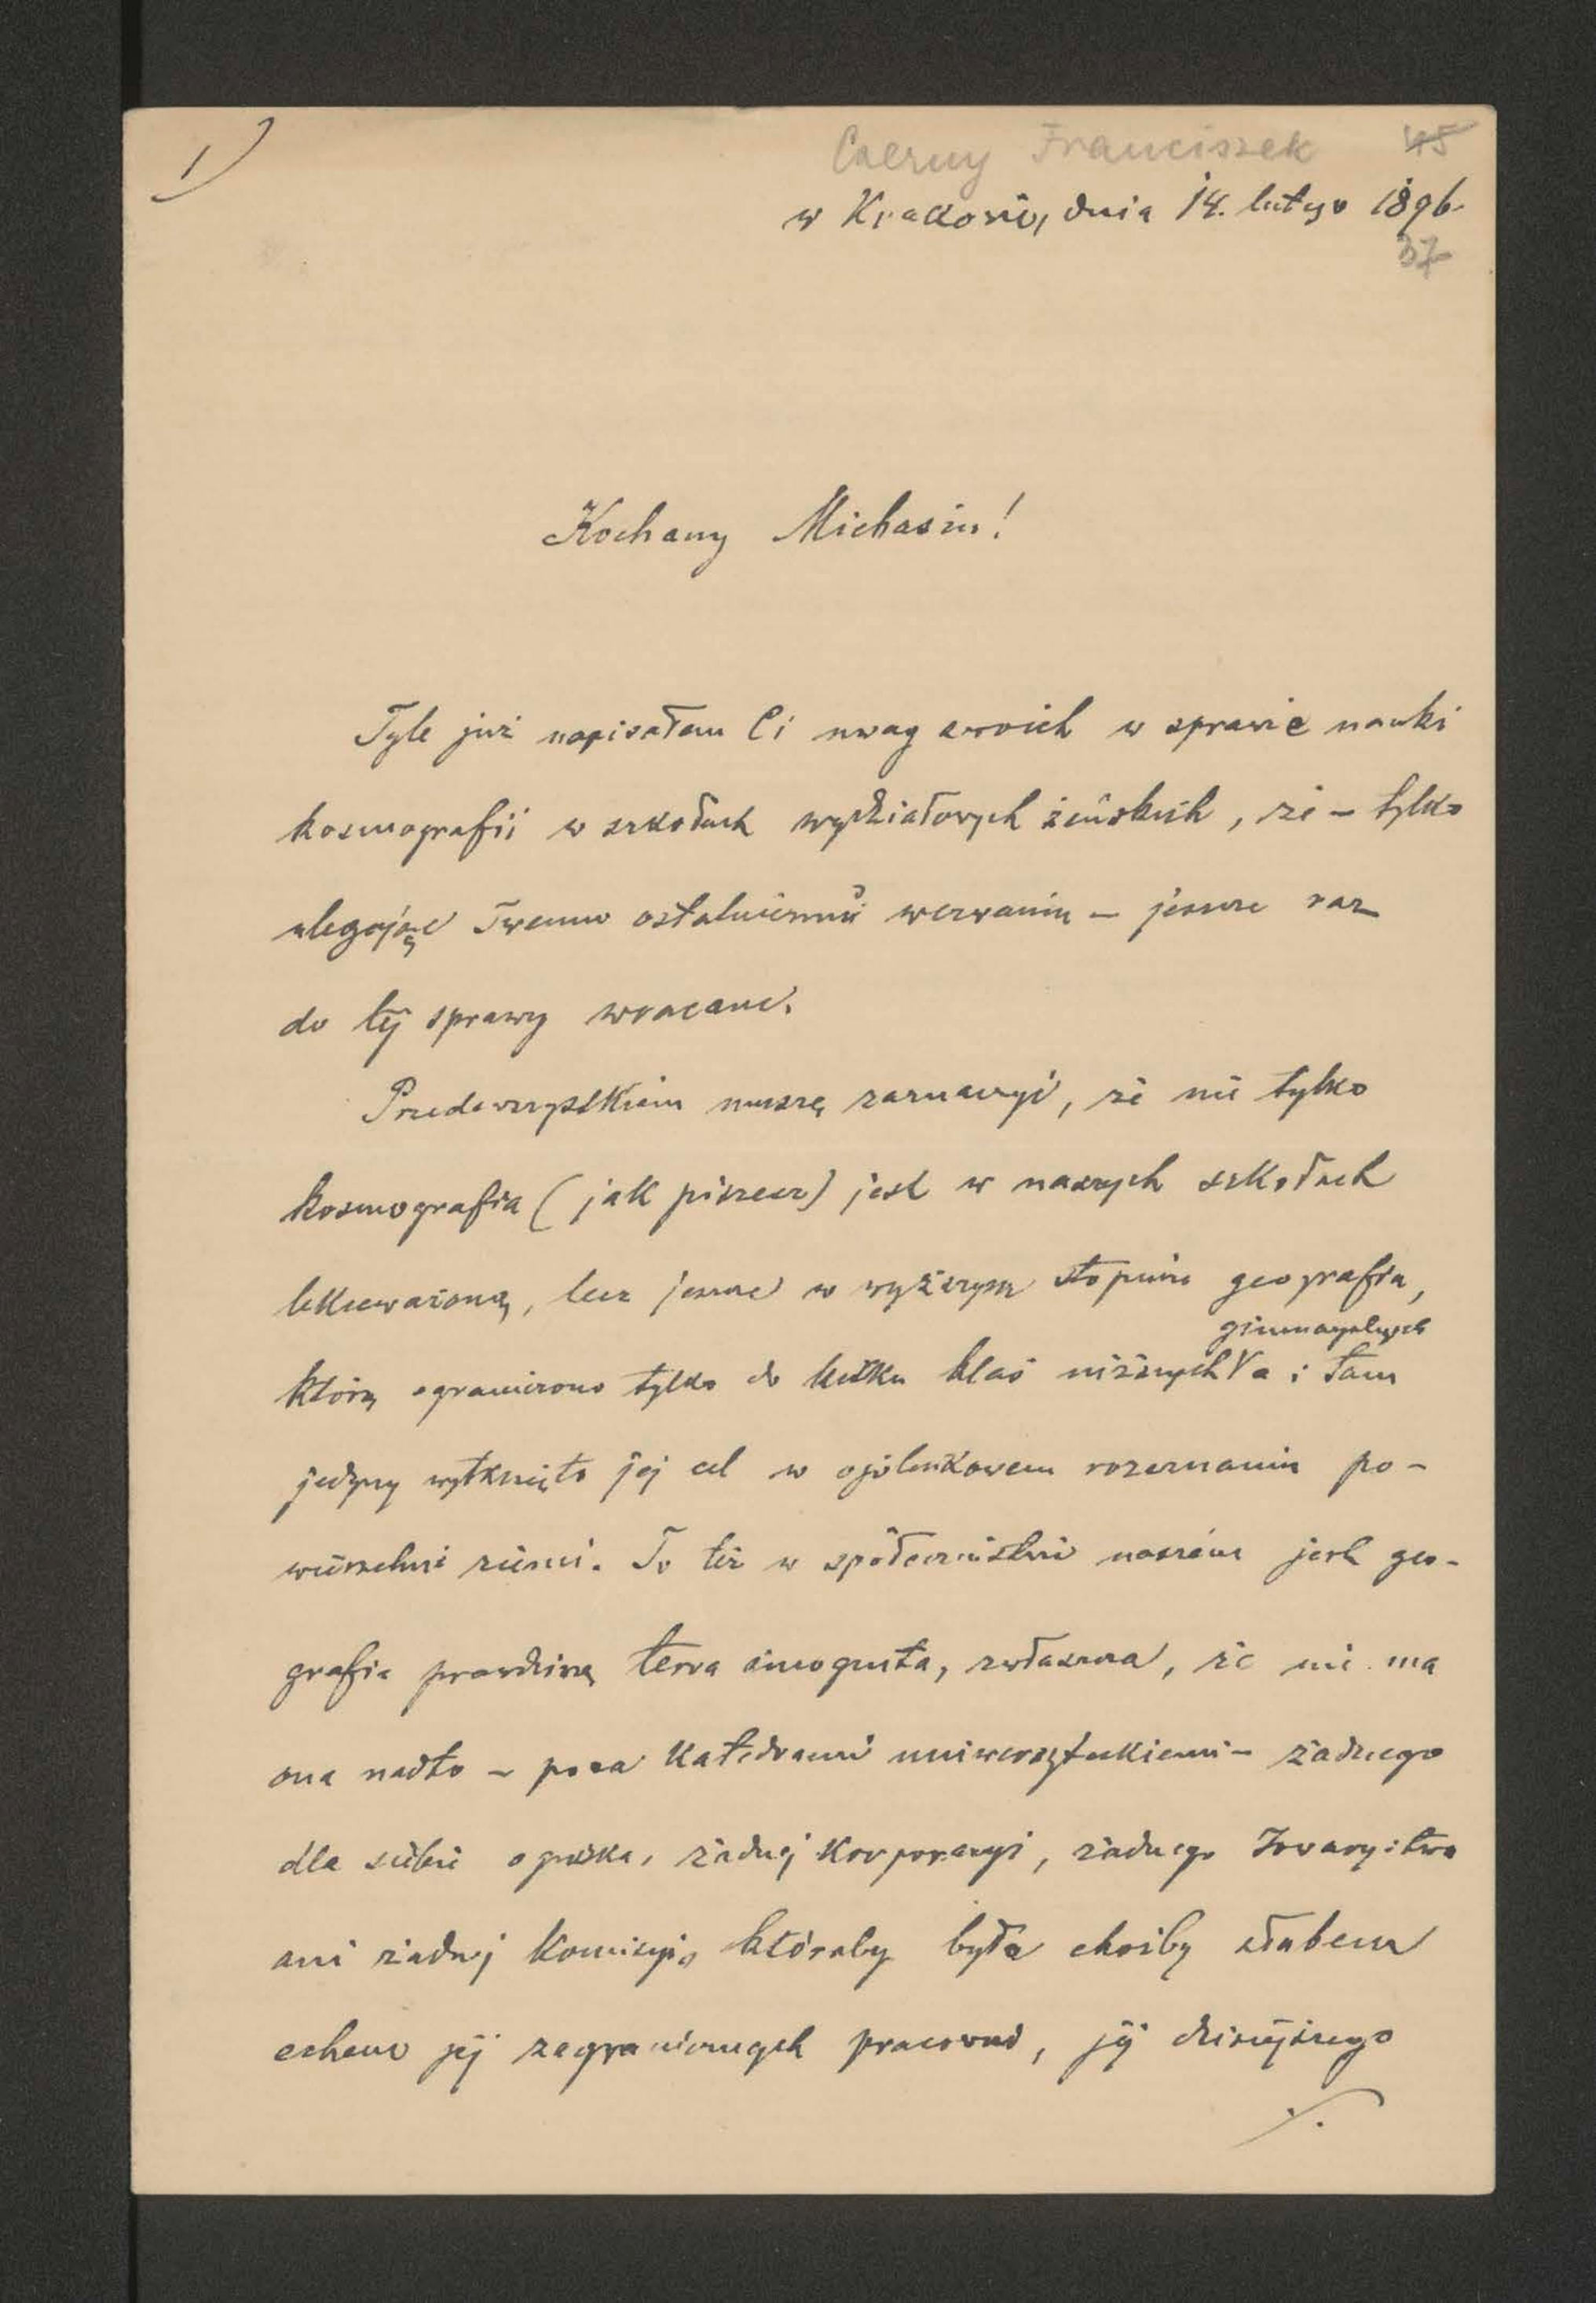 1)
Czerny Franciszek 45
w Krakowie, dnia 14. lutego 1896.
37
Kochany Michasiu!
Tyle już napisałem Ci uwag swoich w sprawie nauki
kosmografii w szkołach wydziałowych żeńskich, że – tylko
ulegając Twemu ostatniemu wezwaniu – jeszcze raz
do tej sprawy wracam.
Przedewszystkiem muszę zaznaczyć, że nie tylko
kosmografia (jak piszesz) jest w naszych szkołach
lekceważoną, lecz jeszcze w wyższym stopniu geografia,
gimnazyalnych
którą ograniczono tylko do kilku klas niższych V a i tam
jedyny wytknięto jej cel w ogólnikowem rozeznaniu po-
wierzchni ziemi. To też w społeczeństwie naszém jest geo-
grafia prawdziwą terra incognita, zwłaszcza, że nie ma
ona nadto – poza katedrami uniwersyteckiemi – żadnego
dla siebie ogniska, żadnej korporacyi, żadnego Towarzystwa
ani żadnej komisyi, któraby była choćby słabem
echem jej zagranicznych pracowni, jej dzisiejszego
./.